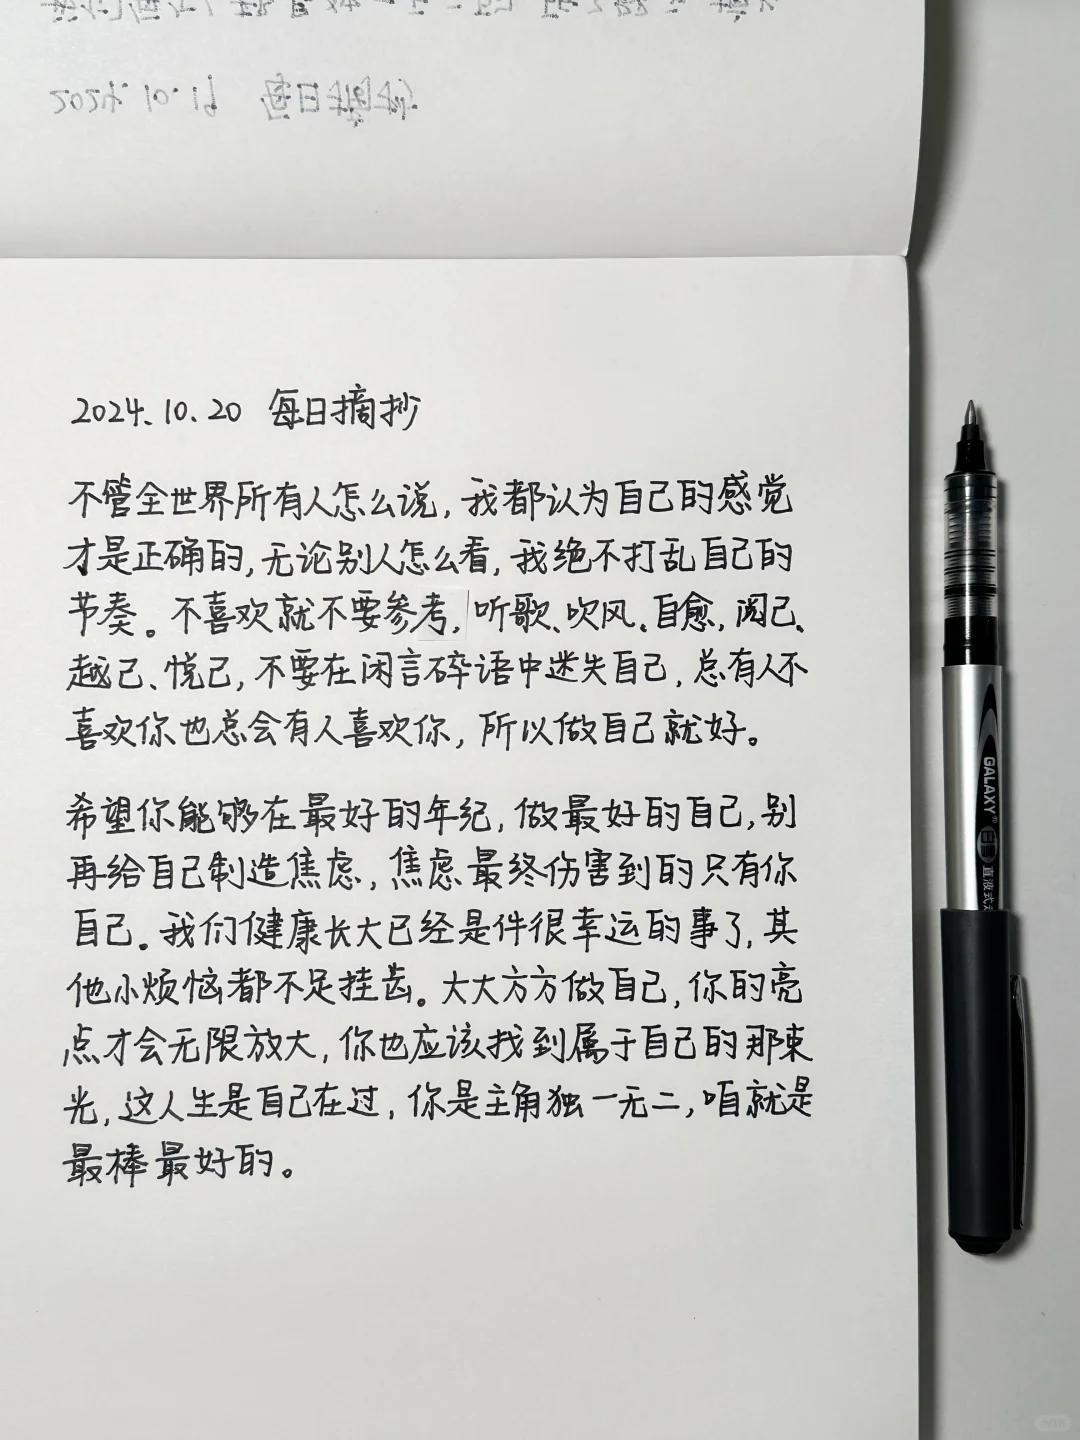 2024.10.19 每日摘抄
2024.10.20 每日摘抄
不管全世界所有人怎么说，我都认为自己的感觉
才是正确的，无论别人怎么看，我绝不打乱自己的
节奏。不喜欢就不要参考，听歌、吹风、自愈，阅己、
越己、悦己，不要在闲言碎语中迷失自己，总有人不
喜欢你也总会有人喜欢你，所以做自己就好。
希望你能够在最好的年纪，做最好的自己，别
再给自己制造焦虑，焦虑最终伤害到的只有你
自己。我们健康长大已经是件很幸运的事了，其
他小烦恼都不足挂齿。大大方方做自己，你的亮
点才会无限放大，你也应该找到属于自己的那束
光，这人生是自己在过，你是主角独一无二，咱就是
最棒最好的。
GALAXY
直液式